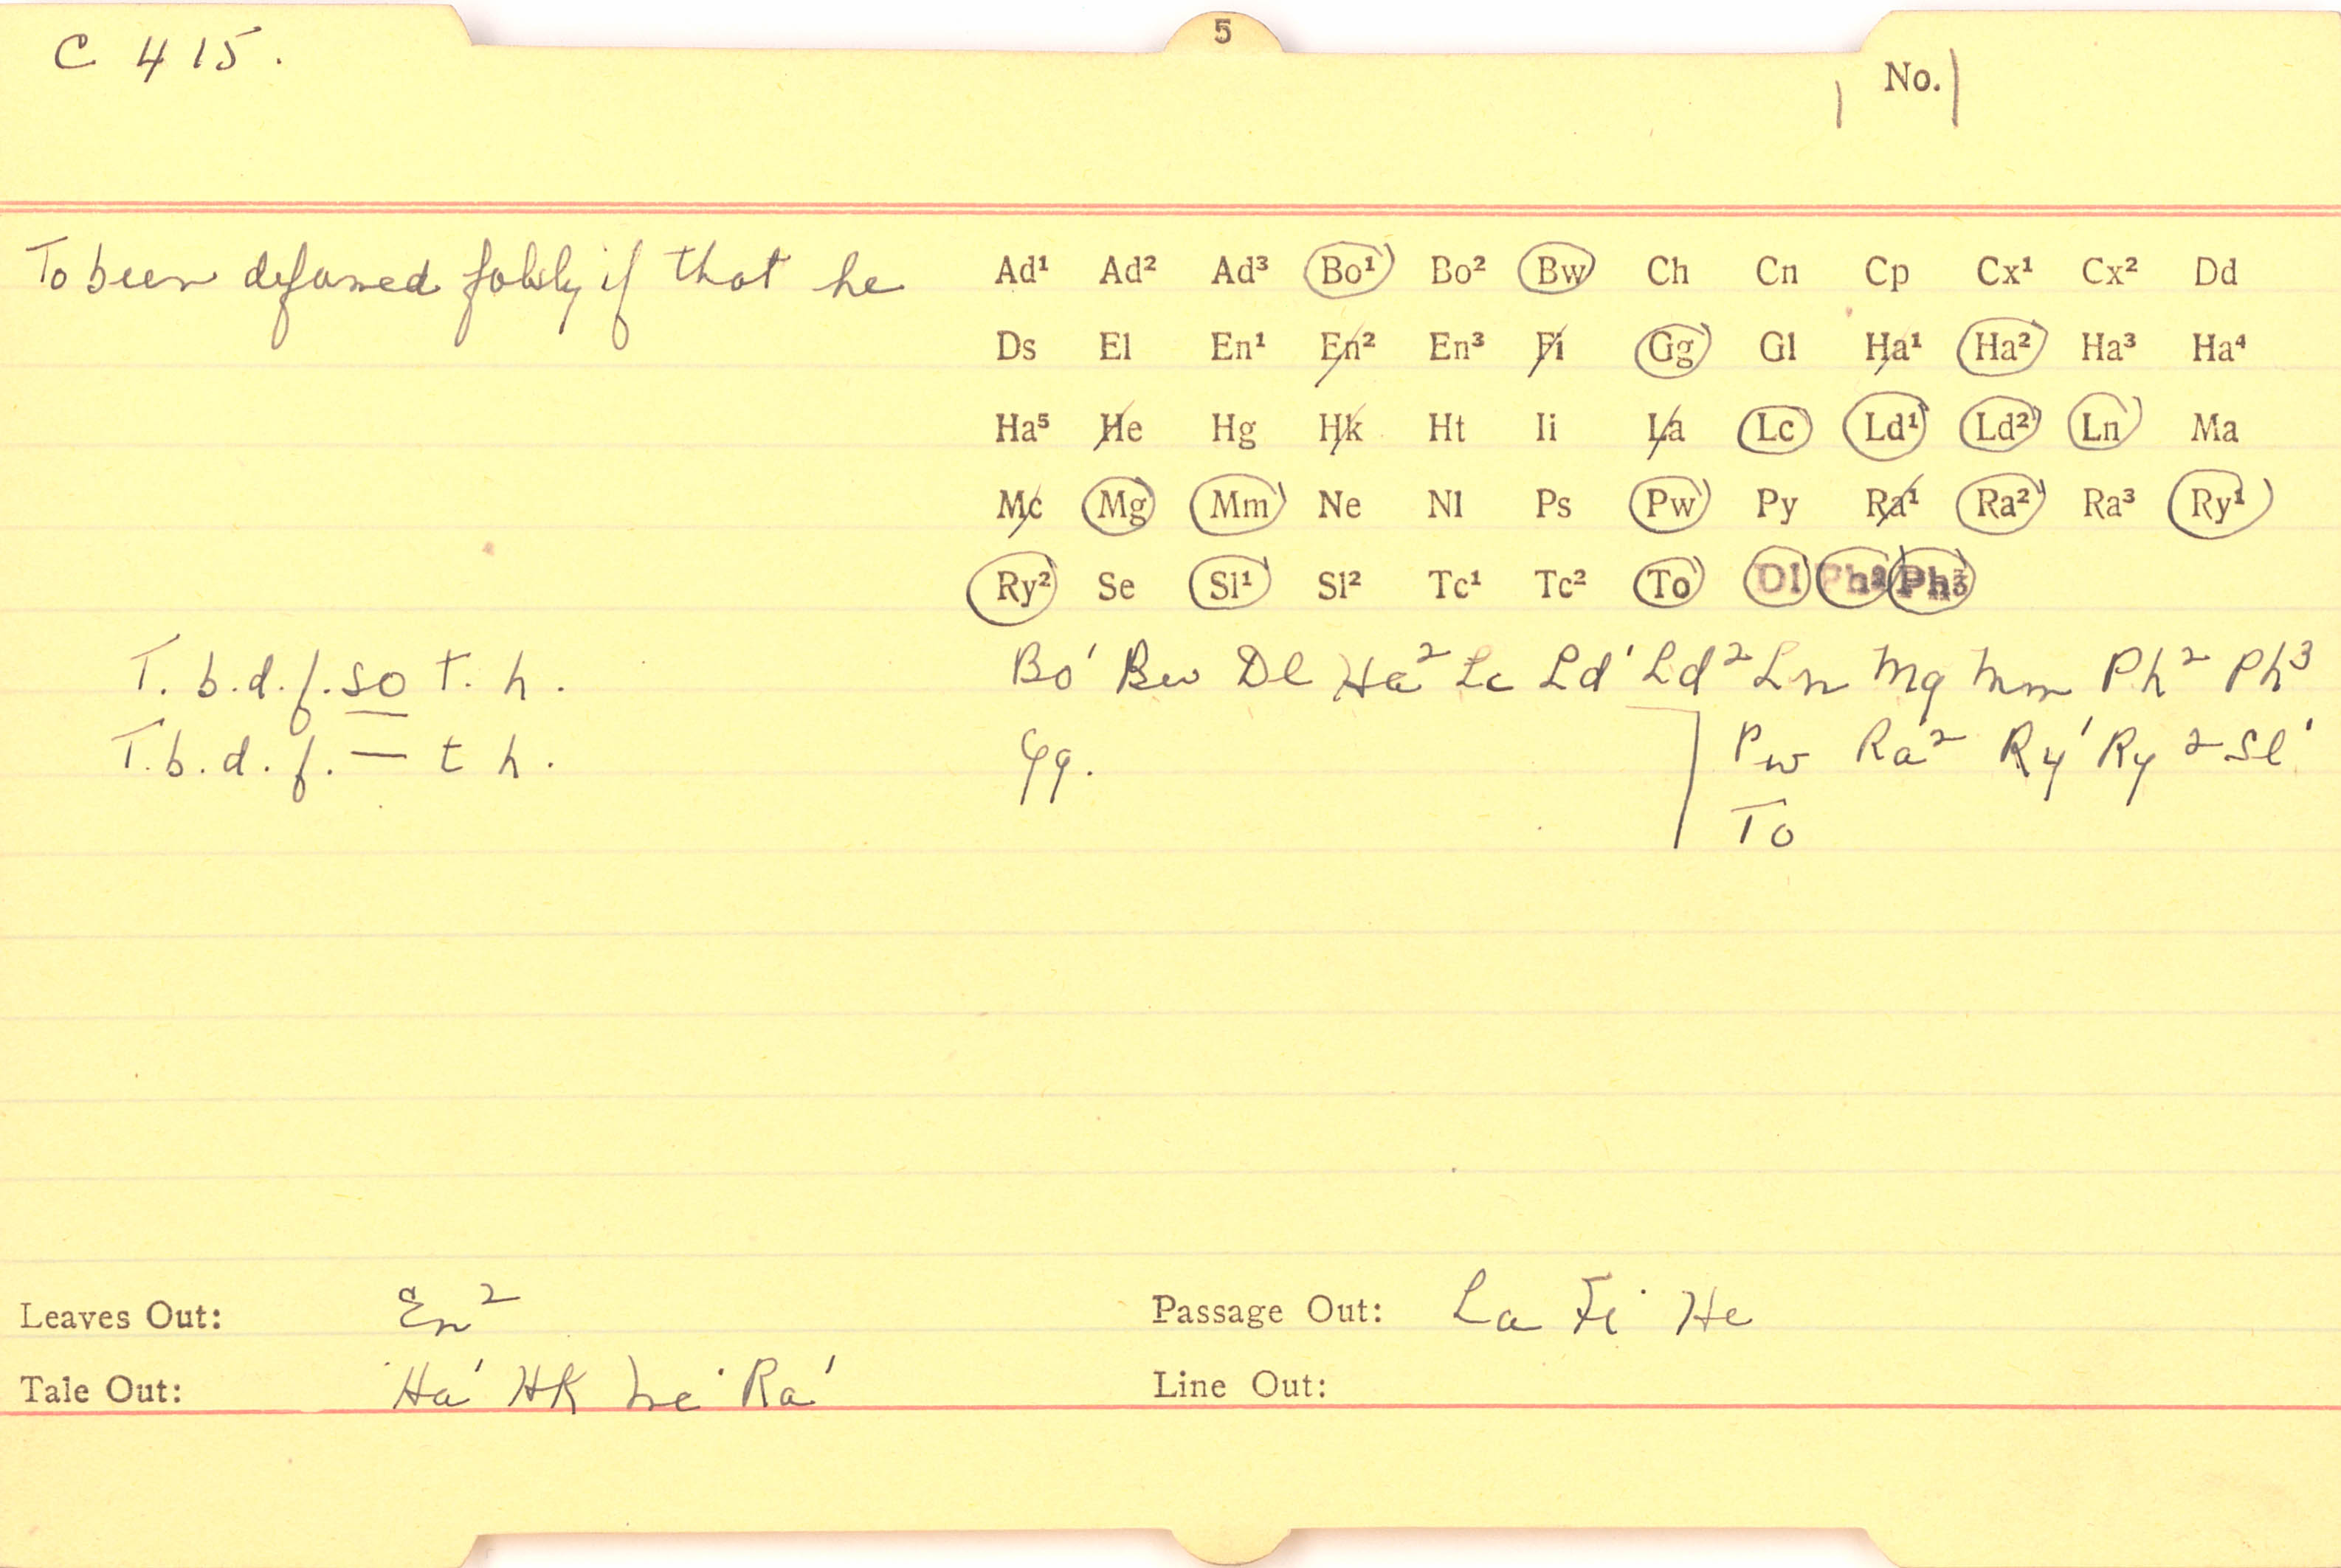 5
C 415.
No.
To been defamed falsly if that he
Ad¹ Ad² Ad³ Bo¹ Bo² Bw Ch Cn Cp Cx¹ Cx² Dd
Ds El En¹ En² En³ Fi Gg Gl Ha¹ Ha² Ha³ Ha⁴
Ha⁵ He Hg Hk Ht Ii La Lc Ld¹ Ld² Ln Ma
Mc Mg Mm Ne Nl Ps Pw Py Ra¹ Ra² Ra³ Ry¹
Ry² Se Sl¹ Sl² Tc¹ Tc² To Dl Ph² Ph³
T. b. d. f. so t. h. Bo¹ Bw Dl Ha² Lc Ld¹ Ld² Ln Mg Mm Ph² Ph³
T. b. d. f. — t h. Gg. Pw Ra² Ry¹ Ry² Sl¹
To
Leaves Out: En² Passage Out: La Fi He
Tale Out: Ha¹ Hk Mc Ra¹ Line Out: